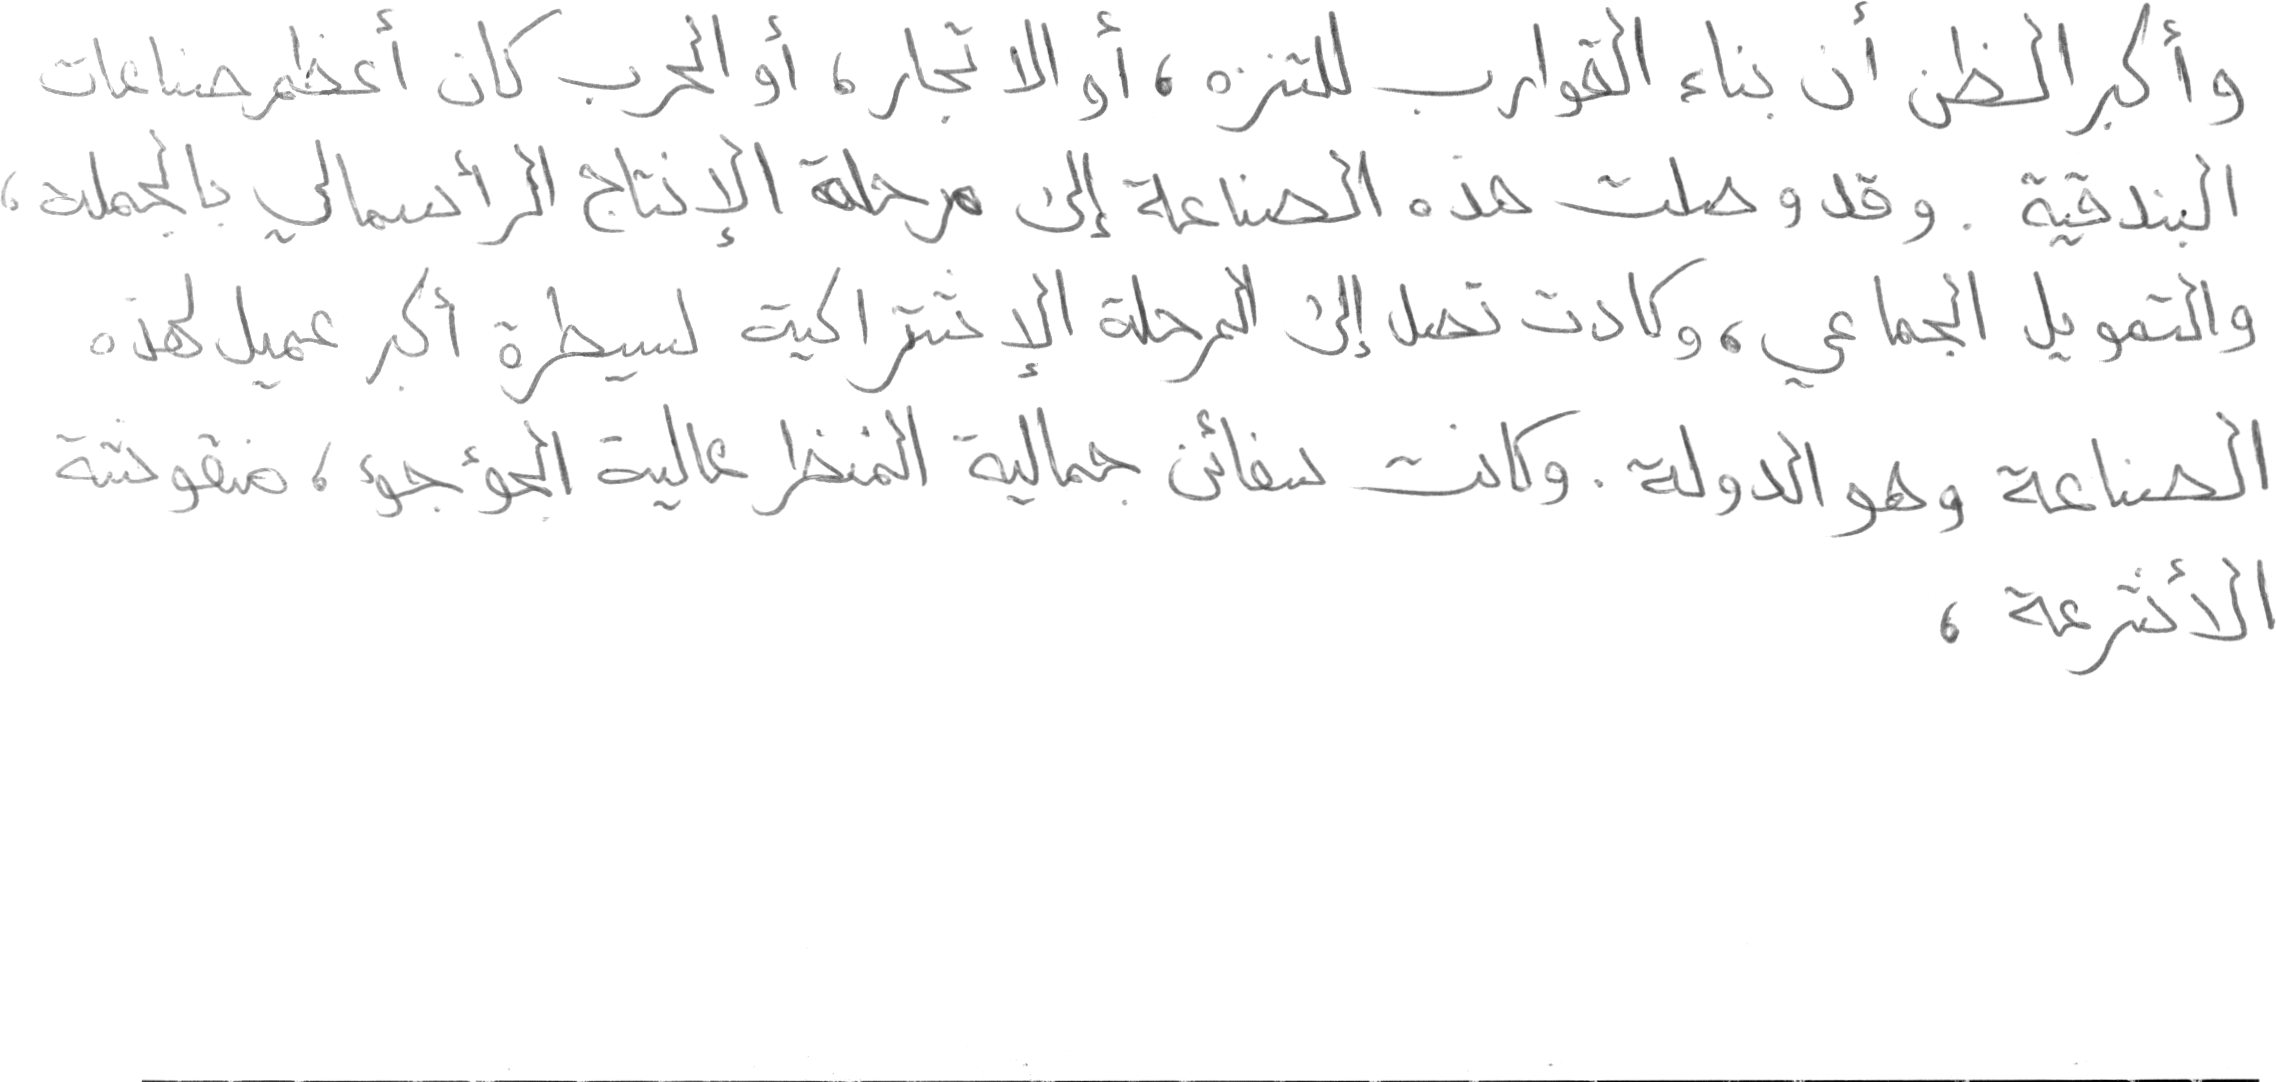 وأكبر الظن أن بناء القوارب للتنزه، أو الاتجار، أو الحرب كان أعظم صناعات
البندقية. وقد وصلت هذه الصناعة إلى مرحلة الإنتاج الرأسمالي بالجملة،
والتمويل الجماعي، وكادت تصل إلى المرحلة الإشتراكية لسيطرة أكبر عميل لهذه
الصناعة وهو الدولة. وكانت سفائن جمالية المنظر عالية الجؤجؤ، منقوشة
الأشرعة،